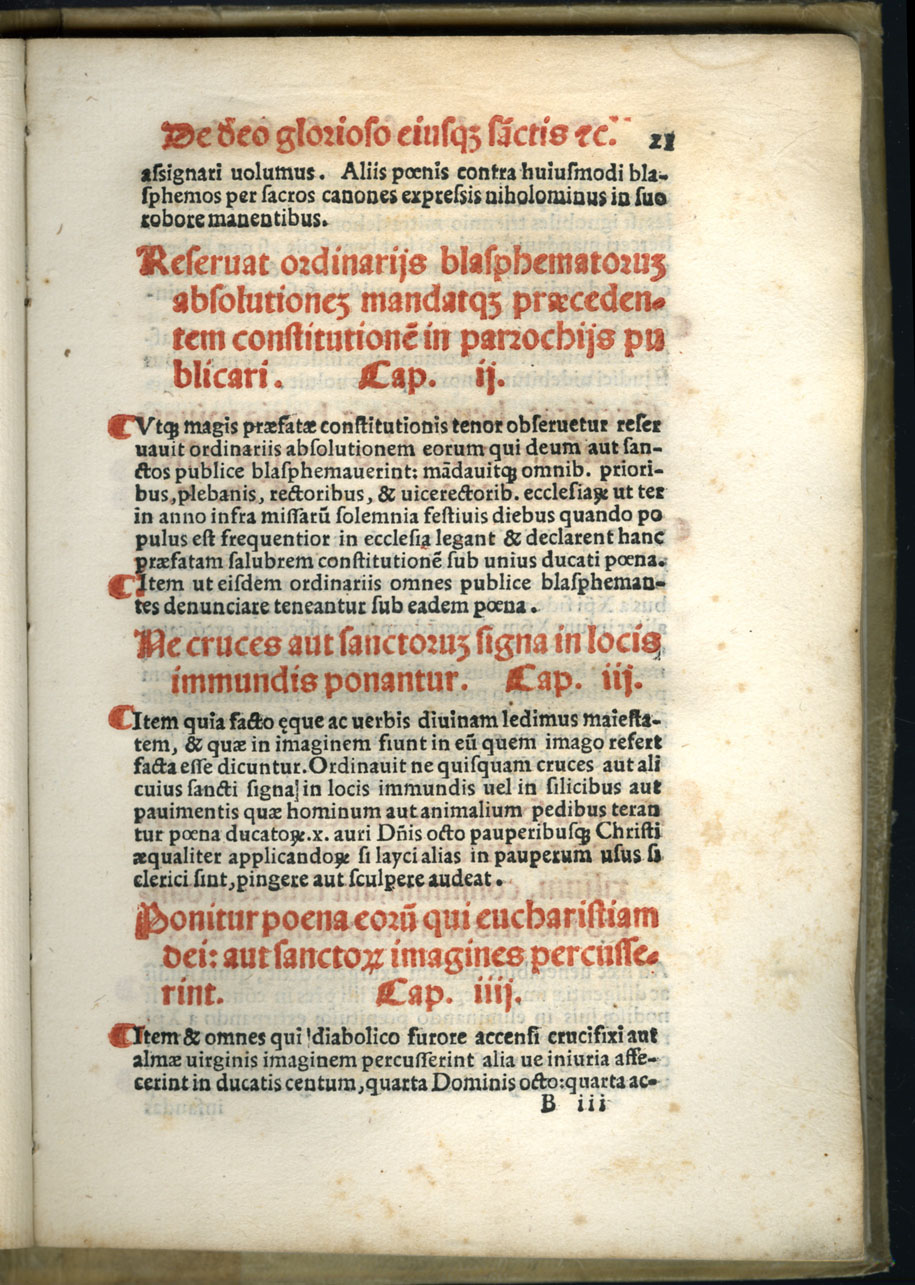 De deo glorioso eiusqꝫ sc̄tis ⁊c. 21
assignari uolumus. Aliis pœnis contra huiusmodi bla-
sphemos per sacros canones expressis niholominus in suo
robore manentibus.
Reseruat ordinarijs blasphematoruꝫ
absolutioneꝫ mandatqꝫ præceden-
tem constitutionē in parrochijs pu
blicari. Cap. ij.
Vtqꝫ magis præfatæ constitutionis tenor obseruetur reser
uauit ordinariis absolutionem eorum qui deum aut san-
ctos publice blasphemauerint: mādauitqꝫ omnib. priori-
bus, plebanis, rectoribus, & uicerectorib. ecclesiaꝝ ut ter
in anno infra missarū solemnia festiuis diebus quando po
pulus est frequentior in ecclesia legant & declarent hanc
præfatam salubrem constitutionē sub unius ducati pœna.
Item ut eisdem ordinariis omnes publice blaspheman-
tes denunciare teneantur sub eadem pœna.
Ne cruces aut sanctoruꝫ signa in locis
immundis ponantur. Cap. iij.
Item quia facto ęque ac uerbis diuinam ledimus maiesta-
tem, & quæ in imaginem fiunt in eū quem imago refert
facta esse dicuntur. Ordinauit ne quisquam cruces aut ali
cuius sancti signa in locis immundis uel in silicibus aut
pauimentis quæ hominum aut animalium pedibus teran
tur pœna ducatoꝝ.x. auri Dn̄is octo pauperibusqꝫ Christi
æqualiter applicandoꝝ si layci alias in pauperum usus si
clerici sint, pingere aut sculpere audeat.
Ponitur poena eorū qui eucharistiam
dei: aut sanctoꝝ imagines percusse-
rint. Cap. iiij.
Item & omnes qui diabolico furore accensi crucifixi aut
almæ uirginis imaginem percusserint alia ue iniuria affe-
cerint in ducatis centum, quarta Dominis octo: quarta ac-
B iii